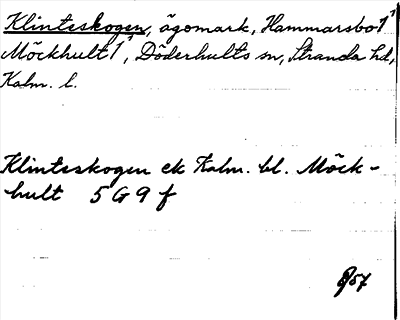 Klintsskogen, ägomark, Hammarsbo 1¹
Möckhult 1¹, Döderhults sn, Stranda hd,
Kalm. l.
Klintsskogen ek Kalm. bl. Möck-
hult 5 G 9 f
57